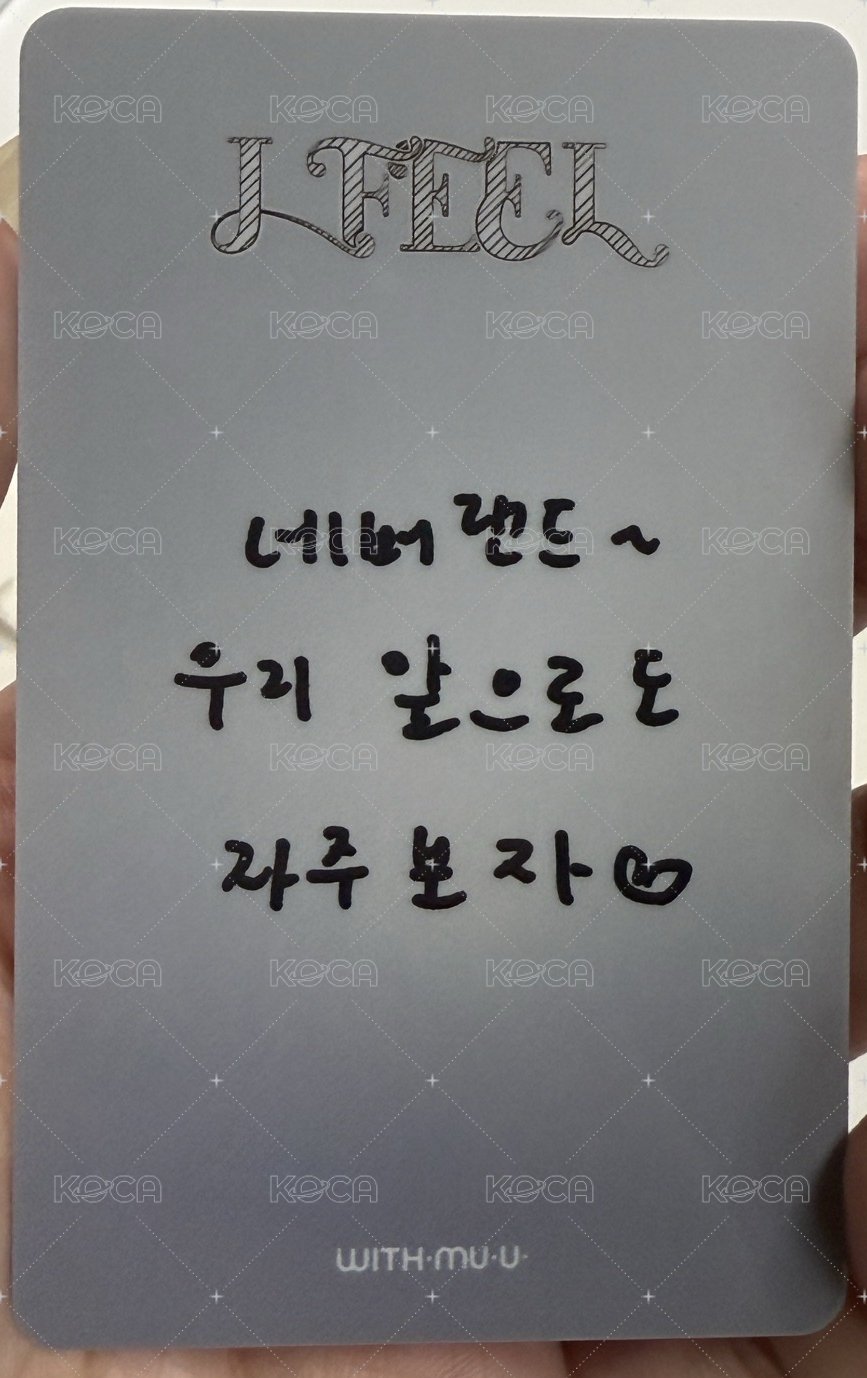 I FEEL
네버랜드~
우리 앞으로도
자주 보자♡
WITH·MU·U·
KOCA KOCA KOCA KOCA
KOCA KOCA KOCA KOCA
KOCA KOCA KOCA KOCA
KOCA KOCA KOCA KOCA
KOCA KOCA KOCA KOCA
KOCA KOCA KOCA KOCA